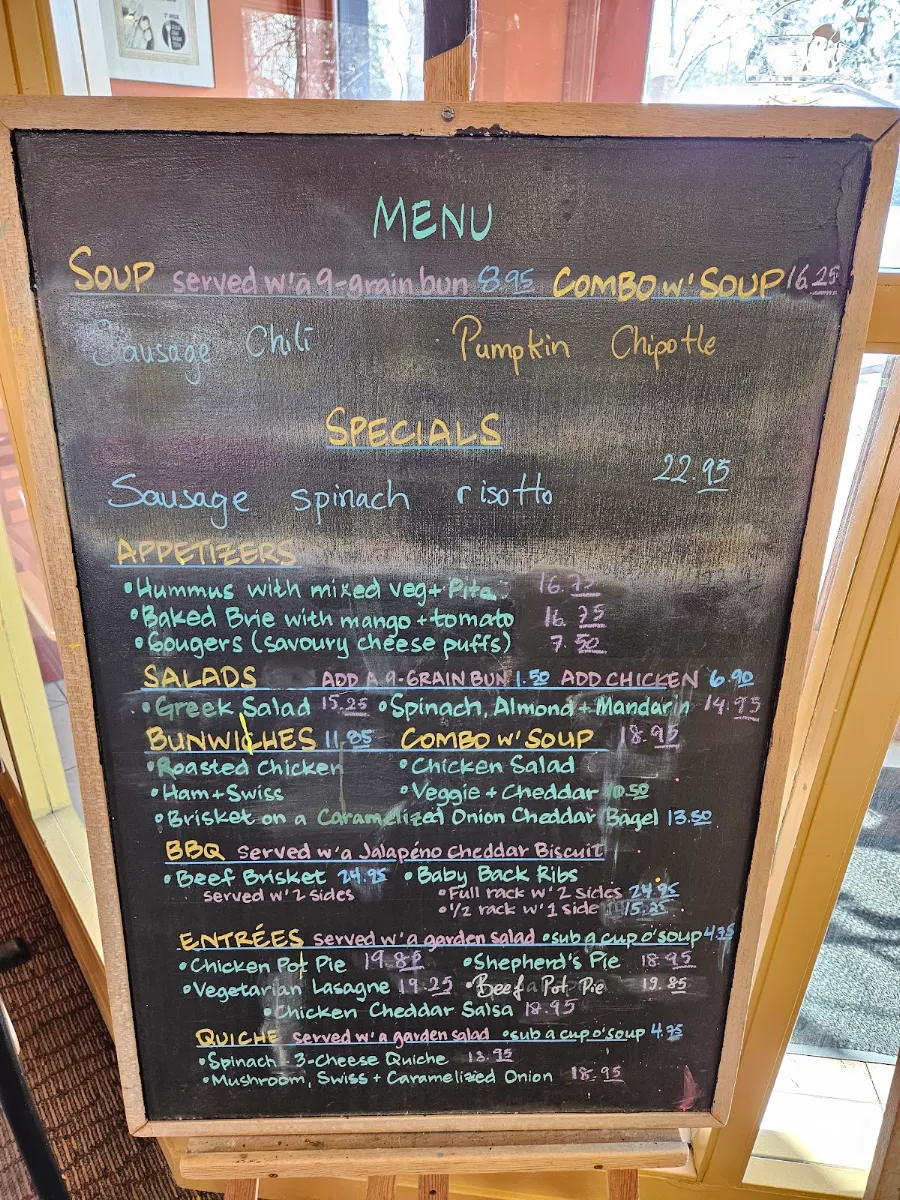 MENU
SOUP served w' a 9-grain bun 8.95 COMBO w' SOUP 16.25
Sausage Chili Pumpkin Chipotle
SPECIALS
Sausage spinach risotto 22.95
APPETIZERS
•Hummus with mixed veg + Pita 16.75
•Baked Brie with mango + tomato 16.75
•Gougers (savoury cheese puffs) 7.50
SALADS ADD A 9-GRAIN BUN 1.50 ADD CHICKEN 6.90
•Greek Salad 15.25 •Spinach, Almond + Mandarin 14.95
BUNWICHES 11.85 COMBO w' SOUP 18.95
•Roasted Chicken •Chicken Salad
•Ham + Swiss •Veggie + Cheddar 10.50
•Brisket on a Caramelized Onion Cheddar Bagel 13.50
BBQ served w' a Jalapéno cheddar Biscuit
•Beef Brisket 24.95 •Baby Back Ribs
served w' 2 sides •Full rack w' 2 sides 24.95
•1/2 rack w' 1 side 15.25
ENTRÉES served w' a garden salad •sub a cup o' soup 4.75
•Chicken Pot Pie 19.85 •Shepherd's Pie 18.95
•Vegetarian Lasagne 19.25 •Beef Pot Pie 19.85
•Chicken Cheddar Salsa 18.95
QUICHE served w' a garden salad •sub a cup o' soup 4.75
•Spinach 3-Cheese Quiche
•Mushroom, Swiss + Caramelized Onion 18.95